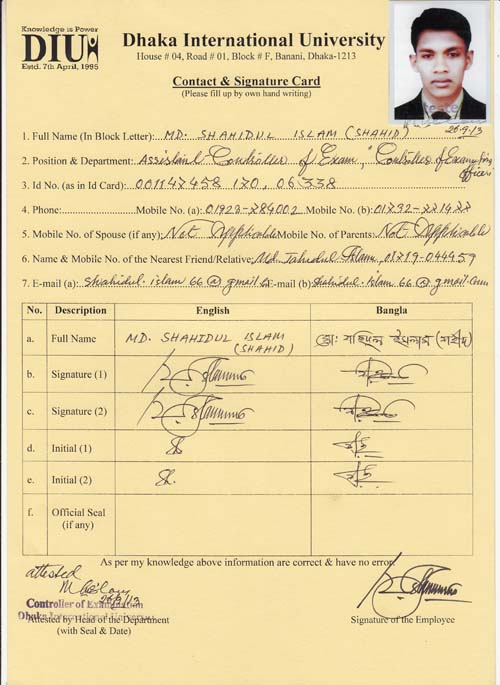 Knowledge is Power
DIU
Estd. 7th April, 1995
Dhaka International University
House # 04, Road # 01, Block # F, Banani, Dhaka-1213
Contact & Signature Card
(Please fill up by own hand writing)
26-9-13
1. Full Name (In Block Letter): MD. SHAHIDUL ISLAM (SHAHID)
2. Position & Department: Assistant Controller of Exam, "Controller of Exam's office"
3. Id No. (as in Id Card): 001147458 170, 06338
4. Phone: Mobile No. (a): 01923-784002 Mobile No. (b): 01732-221477
5. Mobile No. of Spouse (if any): Not Applicable Mobile No. of Parents: Not Applicable
6. Name & Mobile No. of the Nearest Friend/Relative: Md. Jahudul Islam, 01719-044959
7. E-mail (a): shahidul.islam 66 @ gmail E-mail (b) shahidul.islam 66 @ gmail.com
No. Description English Bangla
a. Full Name MD. SHAHIDUL ISLAM (SHAHID) মোঃ শহিদুল ইসলাম (শহীদ)
b. Signature (1)
c. Signature (2)
d. Initial (1) Sh.
e. Initial (2) Sh.
f. Official Seal
(if any)
As per my knowledge above information are correct & have no error.
attested
Controller of Examination
Dhaka International University
Attested by Head of the Department
(with Seal & Date)
Signature of the Employee